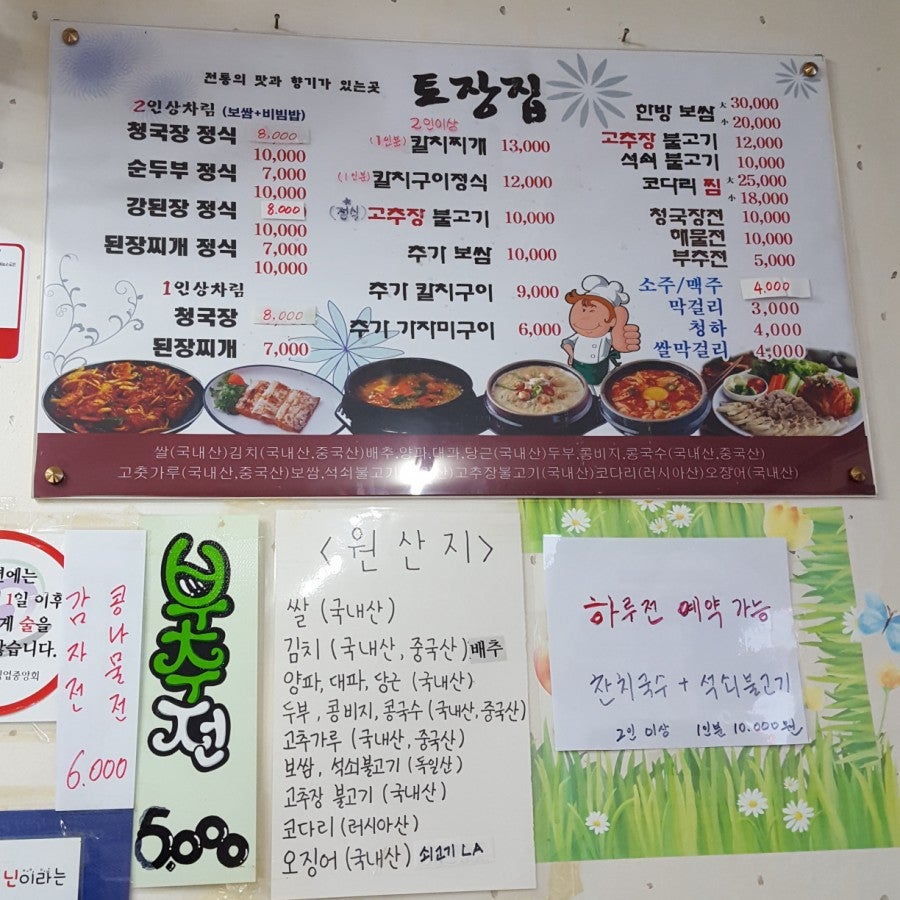 전통의 맛과 향기가 있는곳 토장집
2인상차림 (보쌈+비빔밥)
청국장 정식 8,000
10,000
순두부 정식 7,000
10,000
강된장 정식 8,000
10,000
된장찌개 정식 7,000
10,000
1인상차림
청국장 8,000
된장찌개 7,000
2인이상
(1인분) 칼치찌개 13,000
(1인분) 칼치구이정식 12,000
(정식) 고추장 불고기 10,000
추가 보쌈 10,000
추가 칼치구이 9,000
추가 가자미구이 6,000
한방 보쌈 大 30,000
小 20,000
고추장 불고기 12,000
석쇠 불고기 10,000
코다리 찜 大 25,000
小 18,000
청국장전 10,000
해물전 10,000
부추전 5,000
소주/맥주 4,000
막걸리 3,000
청하 4,000
쌀막걸리 4,000
쌀(국내산)김치(국내산,중국산)배추,양파,대파,당근(국내산)두부,콩비지,콩국수(국내산,중국산)
고춧가루(국내산,중국산)보쌈,석쇠불고기 산)고추장불고기(국내산)코다리(러시아산)오징어(국내산)
변에는
1일 이후
게 술을
않습니다.
업중앙회
콩나물전
감자전
6.000
부추전
5,000
닌이라는
<원산지>
쌀 (국내산)
김치 (국내산, 중국산) 배추
양파, 대파, 당근 (국내산)
두부, 콩비지, 콩국수 (국내산, 중국산)
고추가루 (국내산, 중국산)
보쌈, 석쇠불고기 (독일산)
고추장 불고기 (국내산)
코다리 (러시아산)
오징어 (국내산) 쇠고기 LA
하루전 예약 가능
잔치국수 + 석쇠불고기
2인 이상 1인분 10.000원